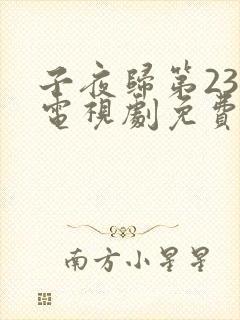 子夜歸第23
電視劇免費
南方小星星